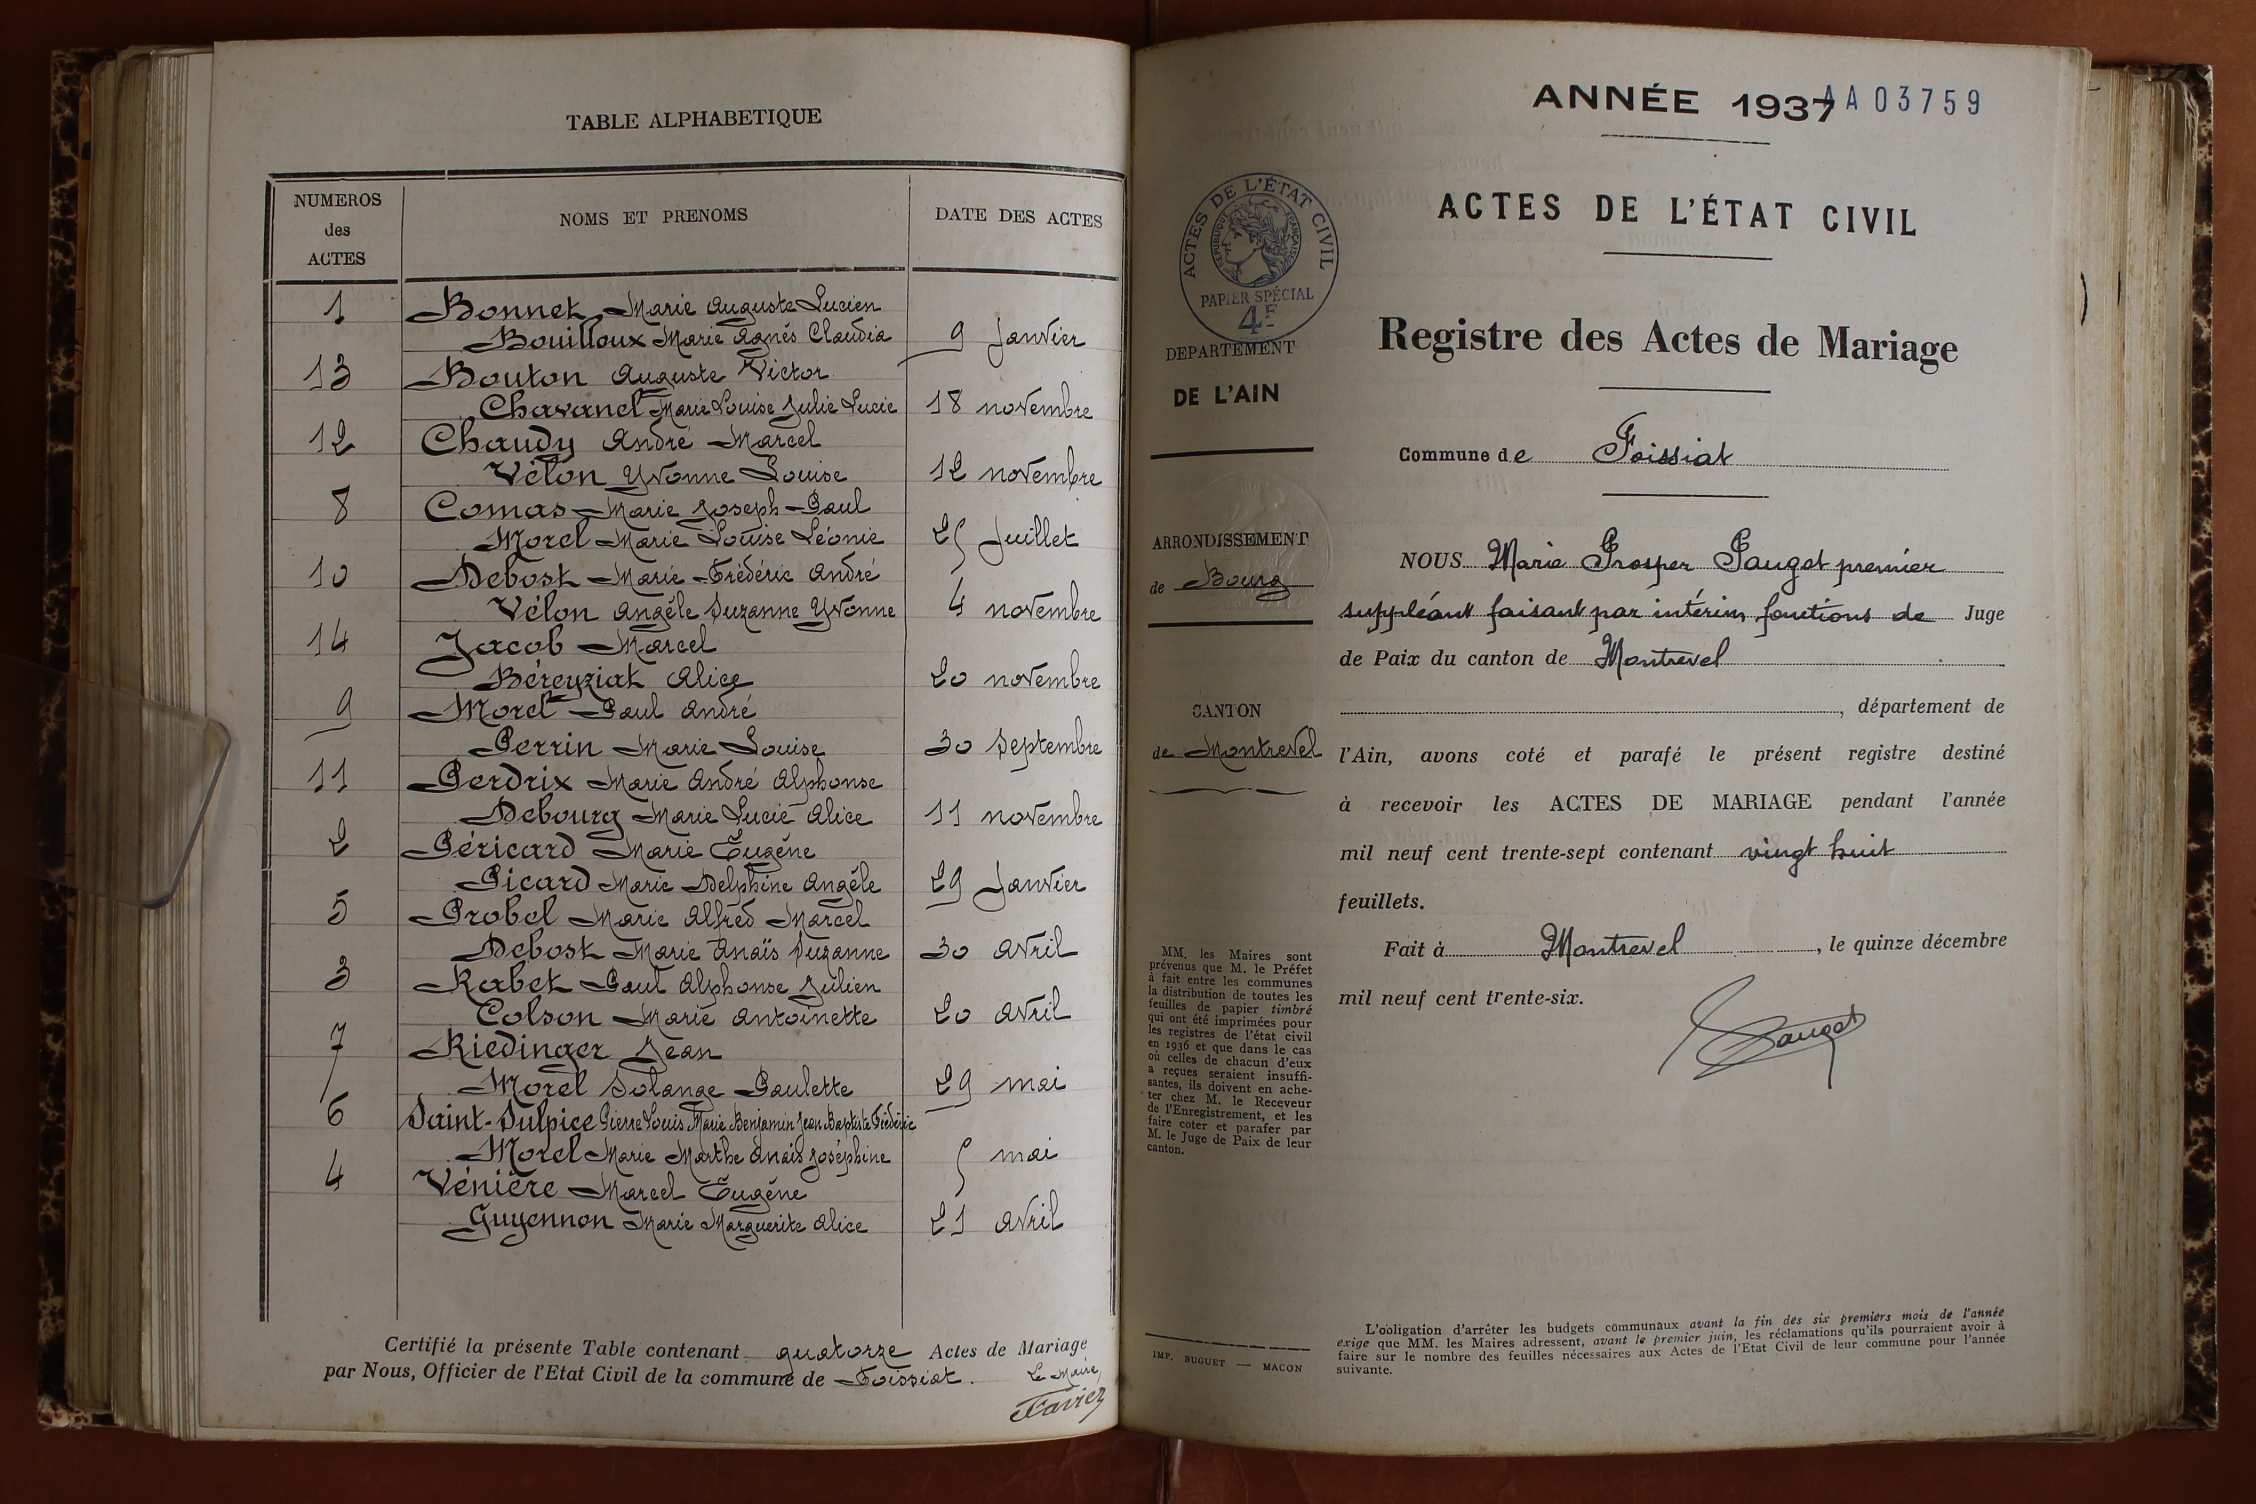 TABLE ALPHABETIQUE
NUMEROS
des
ACTES
NOMS ET PRENOMS
DATE DES ACTES
1 Bonnet Marie Auguste Lucien
Bouilloux Marie Agnés Claudia 9 Janvier
13 Bouton Auguste Victor
Chavanel Marie Louise Julie Lucie 18 novembre
12 Chaudy André Marcel
Vélon Yvonne Louise 12 novembre
8 Comas Marie Joseph Paul
Morel Marie Louise Léonie 25 Juillet
10 Debost Marie Frédéric André
Vélon Angéle Suzanne Yvonne 4 novembre
14 Jacob Marcel
Béreyziat Alice 20 novembre
9 Morel Paul André
Perrin Marie Louise 30 Septembre
11 Perdrix Marie André Alphonse
Debourg Marie Lucie Alice 11 novembre
2 Péricard Marie Eugéne
Picard Marie Delphine Angéle 29 Janvier
5 Probel Marie Alfred Marcel
Debost Marie Anaïs Suzanne 30 Avril
3 Rabet Paul Alphonse Julien
Colson Marie Antoinette 20 Avril
7 Riedinger Jean
Morel Solange Paulette 29 mai
6 Saint-Sulpice Pierre Louis Marie Benjamin Jean Baptiste Frédéric
Morel Marie Marthe Anaïs Joséphine 5 mai
4 Vénière Marcel Eugéne
Guyennon Marie Marguerite Alice 21 Avril
Certifié la présente Table contenant quatorze Actes de Mariage
par Nous, Officier de l'Etat Civil de la commune de Foissiat.
Le Maire,
ANNÉE 1937
AA03759
ACTES DE L'ÉTAT CIVIL
RÉPUBLIQUE FRANÇAISE
PAPIER SPÉCIAL
4F
DEPARTEMENT
DE L'AIN
ARRONDISSEMENT
de Bourg
CANTON
de Montrevel
MM. les Maires sont
prévenus que M. le Préfet
à fait entre les communes
la distribution de toutes les
feuilles de papier timbré
qui ont été imprimées pour
les registres de l'état civil
en 1936 et que dans le cas
où celles de chacun d'eux
a reçues seraient insuffi-
santes, ils doivent en ache-
ter chez M. le Receveur
de l'Enregistrement, et les
faire coter et parafer par
M. le Juge de Paix de leur
canton.
IMP. BUGUET — MACON
ACTES DE L'ÉTAT CIVIL
Registre des Actes de Mariage
Commune de Foissiat
NOUS Marie Prosper Pauget premier
suppléant faisant par intérim fonctions de Juge
de Paix du canton de Montrevel
, département de
l'Ain, avons coté et parafé le présent registre destiné
à recevoir les ACTES DE MARIAGE pendant l'année
mil neuf cent trente-sept contenant vingt huit
feuillets.
Fait à Montrevel, le quinze décembre
mil neuf cent trente-six.
Pauget
L'obligation d'arrêter les budgets communaux avant la fin des six premiers mois de l'année
exige que MM. les Maires adressent, avant le premier juin, les réclamations qu'ils pourraient avoir à
faire sur le nombre des feuilles nécessaires aux Actes de l'Etat Civil de leur commune pour l'année
suivante.